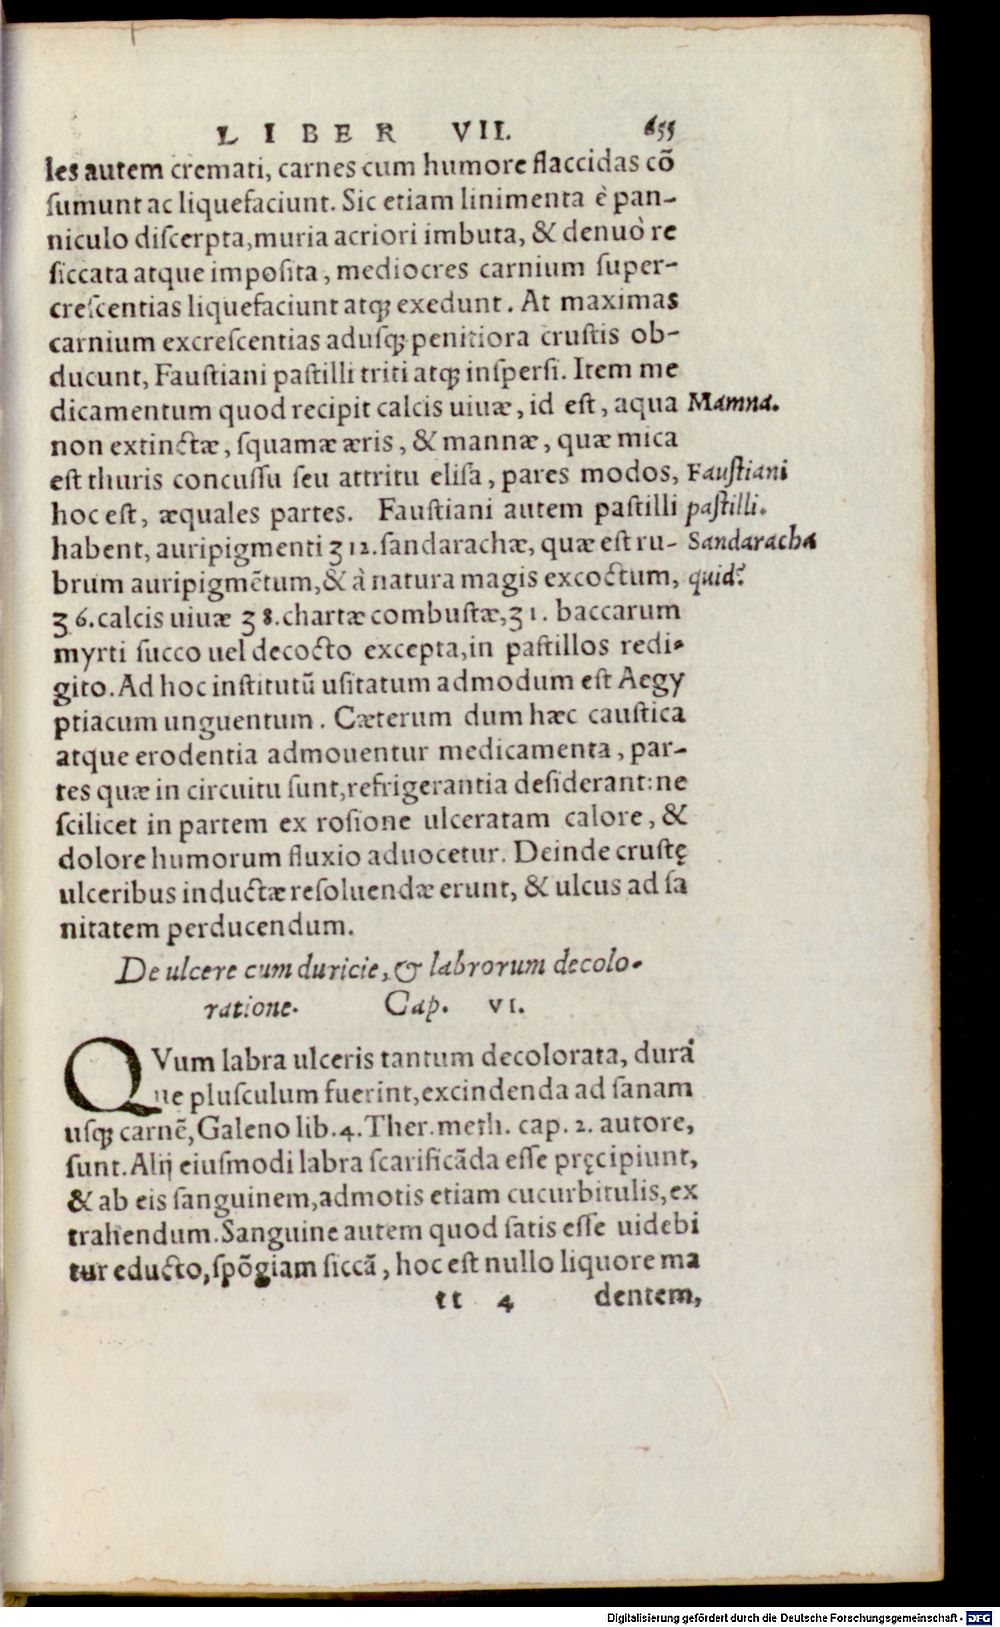 LIBER VII. 655
les autem cremati, carnes cum humore flaccidas cõ
ſumunt ac liquefaciunt. Sic etiam linimenta è pan-
niculo diſcerpta, muria acriori imbuta, & denuò re
ſiccata atque impoſita, mediocres carnium ſuper-
creſcentias liquefaciunt atq; exedunt. At maximas
carnium excreſcentias aduſq; penitiora cruſtis ob-
ducunt, Fauſtiani paſtilli triti atq; inſperſi. Item me
dicamentum quod recipit calcis uiuæ, id eſt, aqua Mamna.
non extinctæ, ſquamæ æris, & mannæ, quæ mica
eſt thuris concuſſu ſeu attritu eliſa, pares modos, Fauſtiani
hoc eſt, æquales partes. Fauſtiani autem paſtilli paſtilli.
habent, auripigmenti ʒ 12. ſandarachæ, quæ eſt ru- Sandaracha
brum auripigmẽtum, & à natura magis excoctum, quid?
ʒ 6. calcis uiuæ ʒ 8. chartæ combuſtæ, ʒ 1. baccarum
myrti ſucco uel decocto excepta, in paſtillos redi-
gito. Ad hoc inſtitutũ uſitatum admodum eſt Aegy
ptiacum unguentum. Cæterum dum hæc cauſtica
atque erodentia admouentur medicamenta, par-
tes quæ in circuitu ſunt, refrigerantia deſiderant: ne
ſcilicet in partem ex roſione ulceratam calore, &
dolore humorum fluxio aduocetur. Deinde cruſtę
ulceribus inductæ reſoluendæ erunt, & ulcus ad ſa
nitatem perducendum.
De ulcere cum duricie, & labrorum decolo-
ratione. Cap. VI.
QVum labra ulceris tantum decolorata, durá
ue pluſculum fuerint, excindenda ad ſanam
uſq; carnẽ, Galeno lib. 4. Ther. meth. cap. 2. autore,
ſunt. Alij eiuſmodi labra ſcarificãda eſſe pręcipiunt,
& ab eis ſanguinem, admotis etiam cucurbitulis, ex
trahendum. Sanguine autem quod ſatis eſſe uidebi
tur educto, ſpõgiam ſiccã, hoc eſt nullo liquore ma
tt 4 dentem,
Digitalisierung gefördert durch die Deutsche Forschungsgemeinschaft - DFG